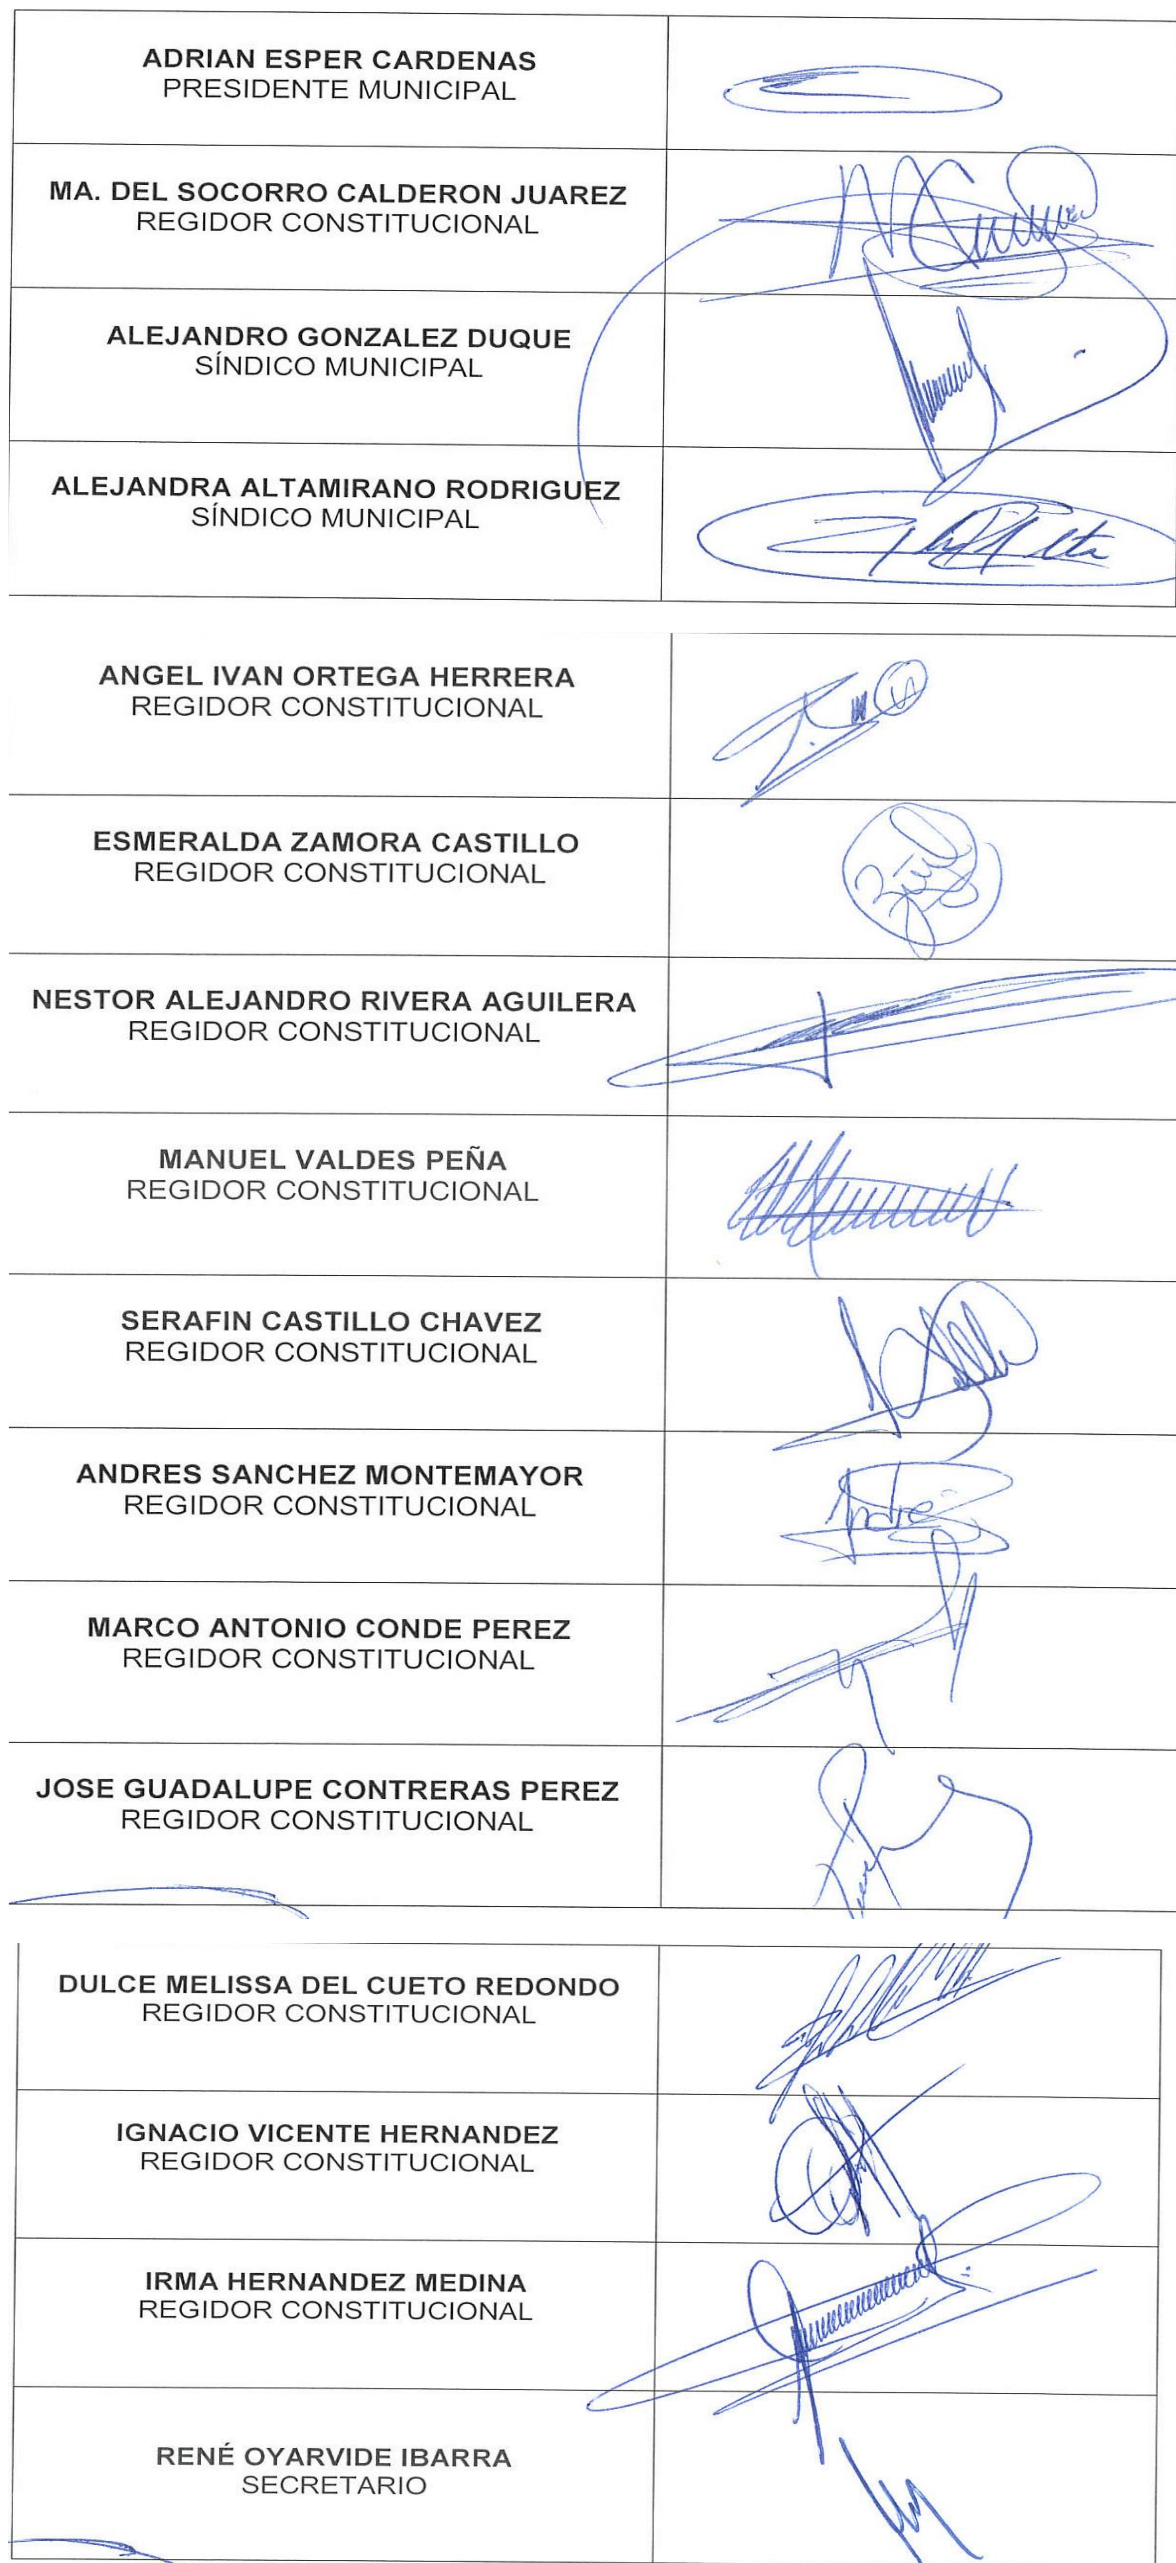 ADRIAN ESPER CARDENAS
PRESIDENTE MUNICIPAL
MA. DEL SOCORRO CALDERON JUAREZ
REGIDOR CONSTITUCIONAL
ALEJANDRO GONZALEZ DUQUE
SÍNDICO MUNICIPAL
ALEJANDRA ALTAMIRANO RODRIGUEZ
SÍNDICO MUNICIPAL
ANGEL IVAN ORTEGA HERRERA
REGIDOR CONSTITUCIONAL
ESMERALDA ZAMORA CASTILLO
REGIDOR CONSTITUCIONAL
NESTOR ALEJANDRO RIVERA AGUILERA
REGIDOR CONSTITUCIONAL
MANUEL VALDES PEÑA
REGIDOR CONSTITUCIONAL
SERAFIN CASTILLO CHAVEZ
REGIDOR CONSTITUCIONAL
ANDRES SANCHEZ MONTEMAYOR
REGIDOR CONSTITUCIONAL
Andres
MARCO ANTONIO CONDE PEREZ
REGIDOR CONSTITUCIONAL
JOSE GUADALUPE CONTRERAS PEREZ
REGIDOR CONSTITUCIONAL
DULCE MELISSA DEL CUETO REDONDO
REGIDOR CONSTITUCIONAL
IGNACIO VICENTE HERNANDEZ
REGIDOR CONSTITUCIONAL
IRMA HERNANDEZ MEDINA
REGIDOR CONSTITUCIONAL
RENÉ OYARVIDE IBARRA
SECRETARIO